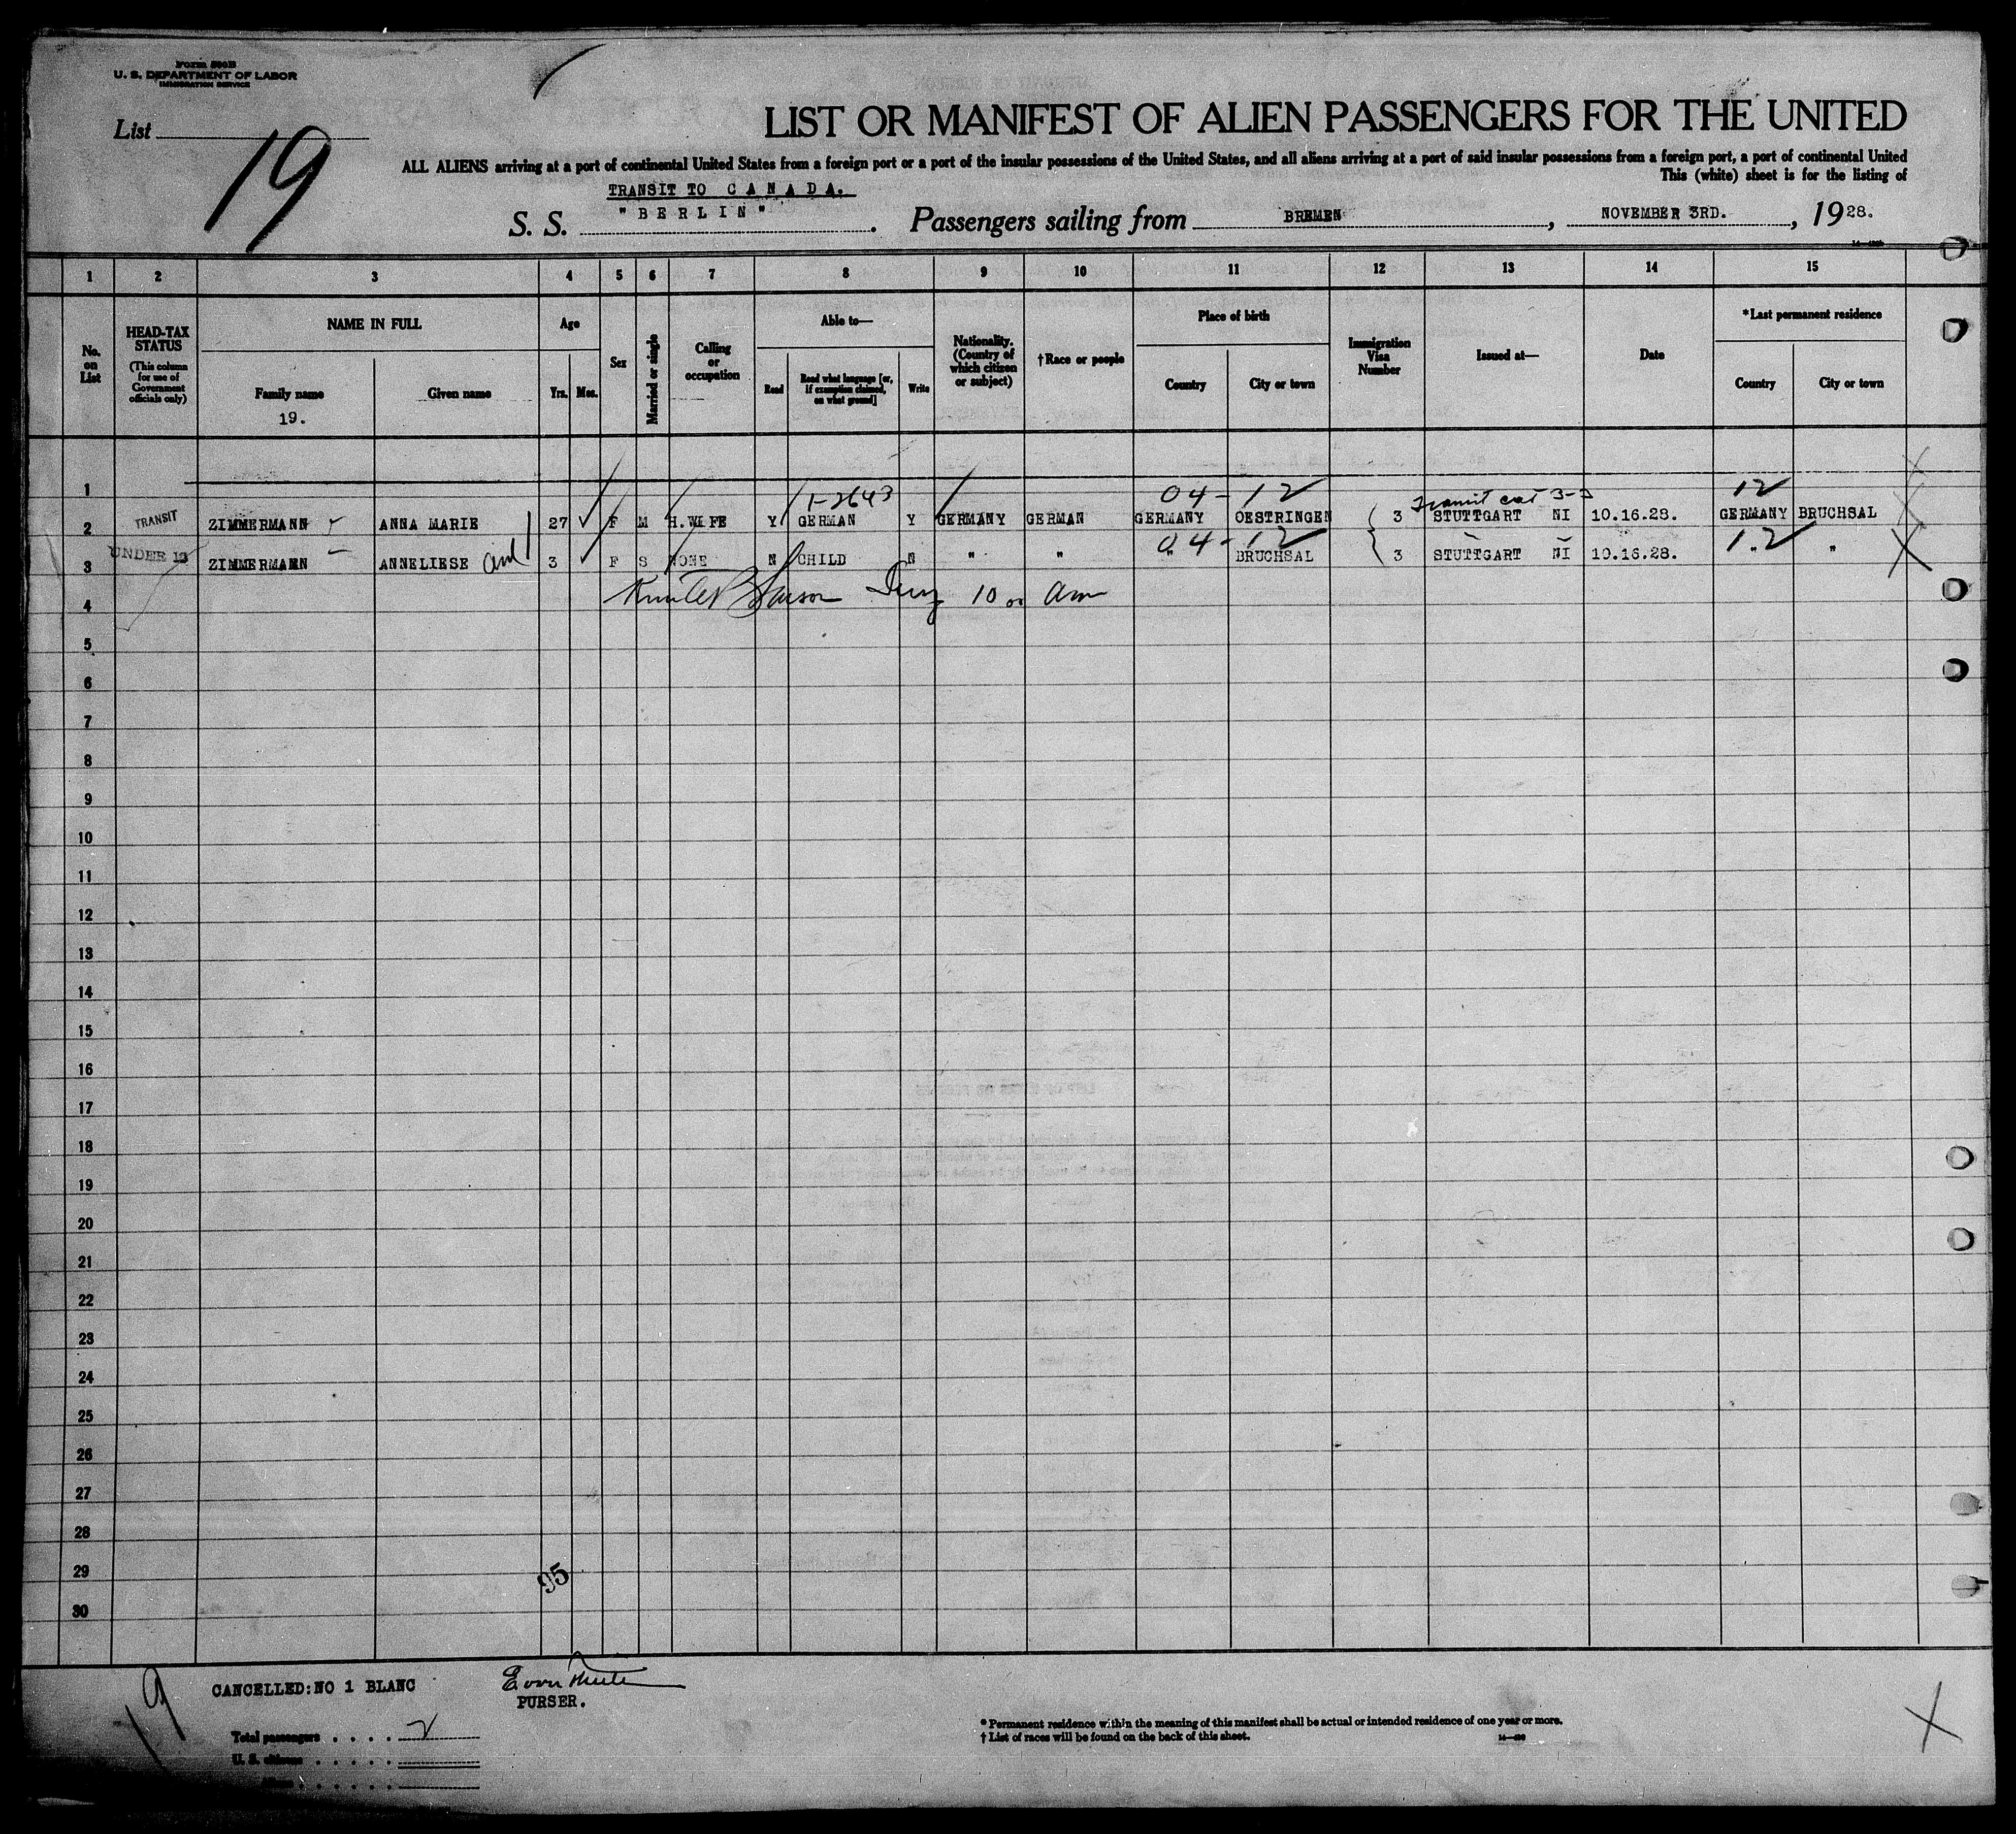 Form 500B
U. S. DEPARTMENT OF LABOR
IMMIGRATION SERVICE
List 19
LIST OR MANIFEST OF ALIEN PASSENGERS FOR THE UNITED
ALL ALIENS arriving at a port of continental United States from a foreign port or a port of the insular possessions of the United States, and all aliens arriving at a port of said insular possessions from a foreign port, a port of continental United
This (white) sheet is for the listing of
TRANSIT TO CANADA.
S. S. "BERLIN". Passengers sailing from BREMEN, NOVEMBER 3RD., 1928.
1 2 3 4 5 6 7 8 9 10 11 12 13 14 15
No. on List
HEAD-TAX STATUS
(This column for use of Government officials only)
NAME IN FULL
Family name
19.
Given name
Age
Yrs. Mos.
Sex
Married or single
Calling or occupation
Able to—
Read
Read what language [or, if exemption claimed, on what ground]
Write
Nationality. (Country of which citizen or subject)
†Race or people
Place of birth
Country
City or town
Immigration Visa Number
Issued at—
Date
*Last permanent residence
Country
City or town
1
1-2643 04-12 Transit cat 3-3 12
2 TRANSIT ZIMMERMANN ANNA MARIE 27 F M H.WIFE Y GERMAN Y GERMANY GERMAN GERMANY OESTRINGEN 3 STUTTGART NI 10.16.28. GERMANY BRUCHSAL
04-12 12
3 UNDER ZIMMERMANN ANNELIESE 3 F S NONE N CHILD N " " " BRUCHSAL 3 STUTTGART NI 10.16.28. "
4 10 00 am
5
6
7
8
9
10
11
12
13
14
15
16
17
18
19
20
21
22
23
24
25
26
27
28
29
95
30
19
CANCELLED: NO 1 BLANC
PURSER.
Total passengers . . . . 2
U. S. citizens . . . . .
Aliens . . . . .
* Permanent residence within the meaning of this manifest shall be actual or intended residence of one year or more.
† List of races will be found on the back of this sheet.